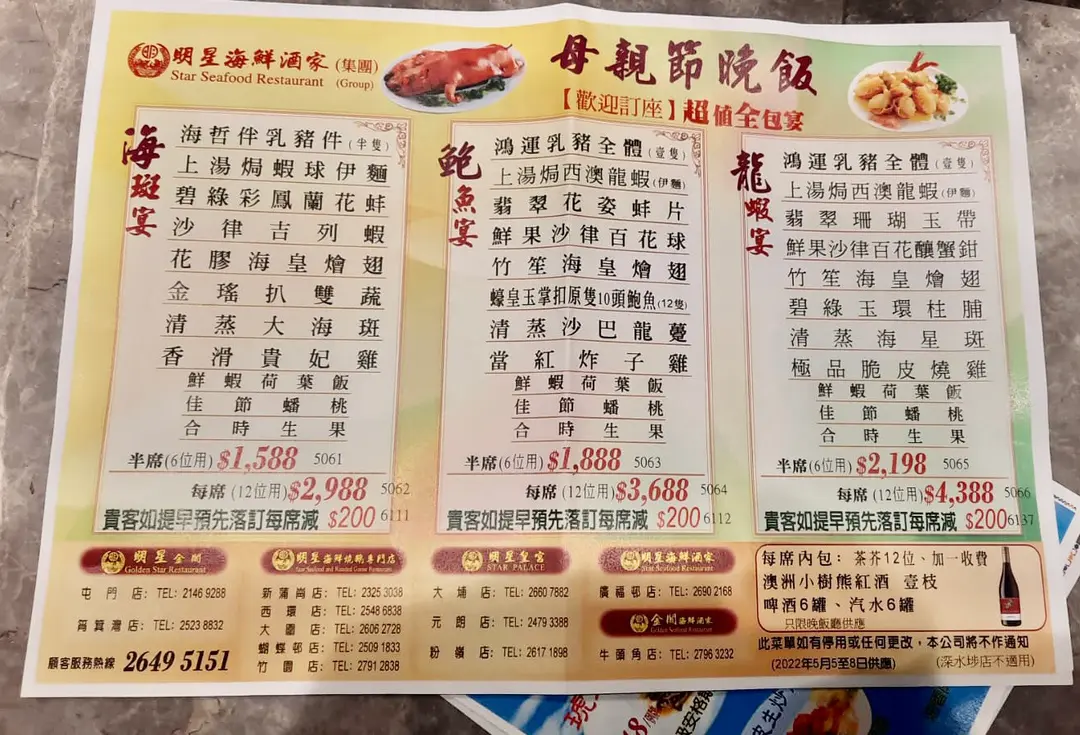 明星海鮮酒家(集團)
Star Seafood Restaurant (Group)
母親節晚飯
【歡迎訂座】超值全包宴
海斑宴
海哲伴乳豬件(半隻)
上湯焗蝦球伊麵
碧綠彩鳳蘭花蚌
沙律吉列蝦
花膠海皇燴翅
金瑤扒雙蔬
清蒸大海斑
香滑貴妃雞
鮮蝦荷葉飯
佳節蟠桃
合時生果
半席(6位用)$1,588 5061
每席(12位用)$2,988 5062
貴客如提早預先落訂每席減 $200 6111
鮑魚宴
鴻運乳豬全體(壹隻)
上湯焗西澳龍蝦(伊麵)
翡翠花姿蚌片
鮮果沙律百花球
竹笙海皇燴翅
蠔皇玉掌扣原隻10頭鮑魚(12隻)
清蒸沙巴龍躉
當紅炸子雞
鮮蝦荷葉飯
佳節蟠桃
合時生果
半席(6位用)$1,888 5063
每席(12位用)$3,688 5064
貴客如提早預先落訂每席減 $200 6112
龍蝦宴
鴻運乳豬全體(壹隻)
上湯焗西澳龍蝦(伊麵)
翡翠珊瑚玉帶
鮮果沙律百花釀蟹鉗
竹笙海皇燴翅
碧綠玉環柱脯
清蒸海星斑
極品脆皮燒雞
鮮蝦荷葉飯
佳節蟠桃
合時生果
半席(6位用)$2,198 5065
每席(12位用)$4,388 5066
貴客如提早預先落訂每席減 $200 6137
明星金閣
Golden Star Restaurant
屯門店: TEL: 2146 9288
筲箕灣店: TEL: 2523 8832
顧客服務熱線 2649 5151
明星海鮮燒鵝專門店
Star Seafood and Roasted Goose Restaurant
新蒲崗店: TEL: 2325 3038
西環店: TEL: 2548 6838
大圍店: TEL: 2606 2728
蝴蝶邨店: TEL: 2509 1833
竹園店: TEL: 2791 2838
明星皇宮
STAR PALACE
大埔店: TEL: 2660 7882
元朗店: TEL: 2479 3388
粉嶺店: TEL: 2617 1898
明星海鮮酒家
Star Seafood Restaurant
廣福邨店: TEL: 2690 2168
金閣海鮮酒家
Golden Seafood Restaurant
牛頭角店: TEL: 2796 3232
每席內包: 茶芥12位、加一收費
澳洲小樹熊紅酒 壹枝
啤酒6罐、汽水6罐
只限晚飯廳供應
此菜單如有停用或任何更改，本公司將不作通知
(2022年5月5至8日供應) (深水埗店不適用)